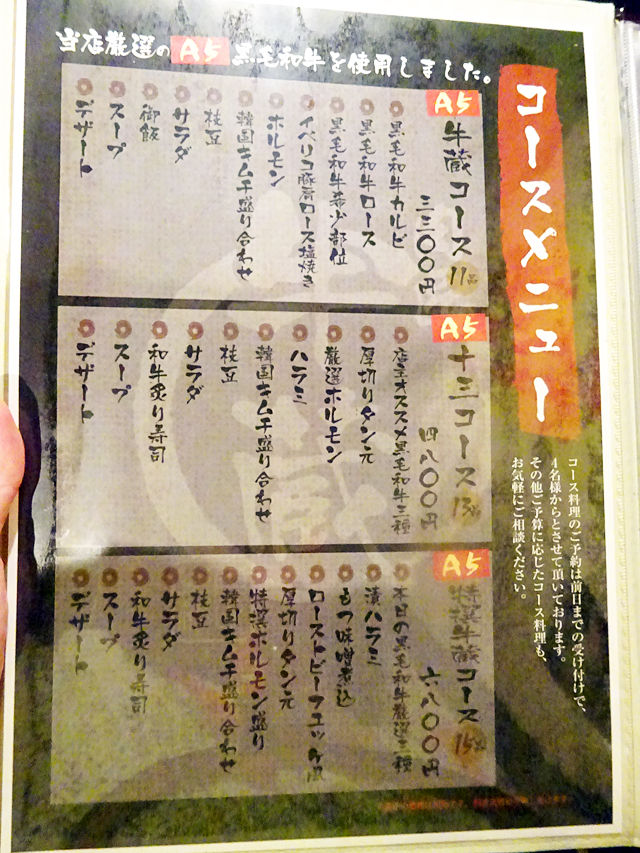 当店厳選のA5黒毛和牛を使用しました。
コースメニュー
コース料理のご予約は前日までの受け付けで、
4名様からとさせて頂いております。
その他ご予算に応じたコース料理も、
お気軽にご相談ください。
A5
牛蔵コース 11品
三三〇〇円
黒毛和牛カルビ
黒毛和牛ロース
黒毛和牛希少部位
イベリコ豚肩ロース塩焼き
ホルモン
韓国キムチ盛り合わせ
枝豆
サラダ
御飯
スープ
デザート
A5
十三コース 13品
四八〇〇円
店主オススメ黒毛和牛三種
厚切りタン元
厳選ホルモン
ハラミ
韓国キムチ盛り合わせ
枝豆
サラダ
和牛炙り寿司
スープ
デザート
A5
特撰牛蔵コース 15品
六八〇〇円
本日の黒毛和牛厳選三種
漬ハラミ
もつ味噌煮込
ローストビーフユッケ風
厚切りタン元
特撰ホルモン盛り
韓国キムチ盛り合わせ
枝豆
サラダ
和牛炙り寿司
スープ
デザート